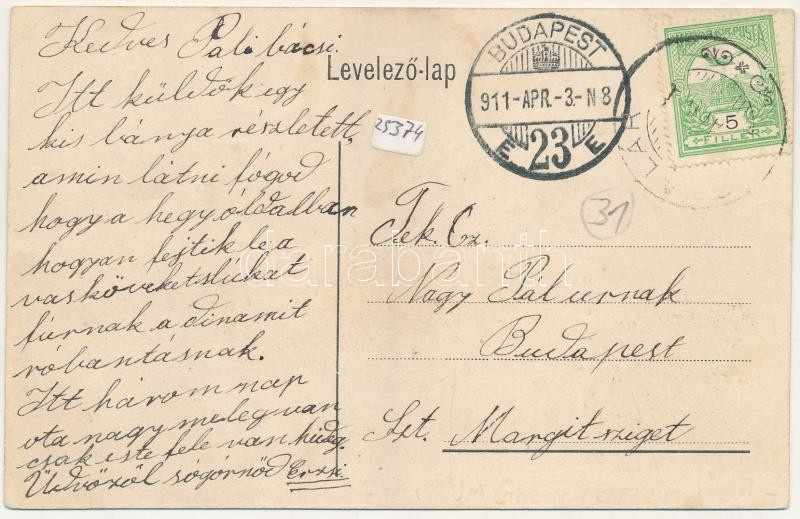 Kedves Pali bácsi.
Itt küldök egy
kis bánya részletett,
amin látni fogod
hogy a hegyóldalban
hogyan fejtik le a
vasköveket slukat
fúrnak a dinamit
róbantásnak.
Itt három nap
ota nagy meleg van
csak este fele van hideg.
Üdvözöl sógórnőd Erzsi.
Levelező-lap
25374
BUDAPEST
911-APR.-3.-N 8
E 23 E
MAGYAR KIR. POSTA
5
FILLÉR
31
Tek.
Nagy Pal urnak
Budapest
Szt. Margitsziget
darabanth